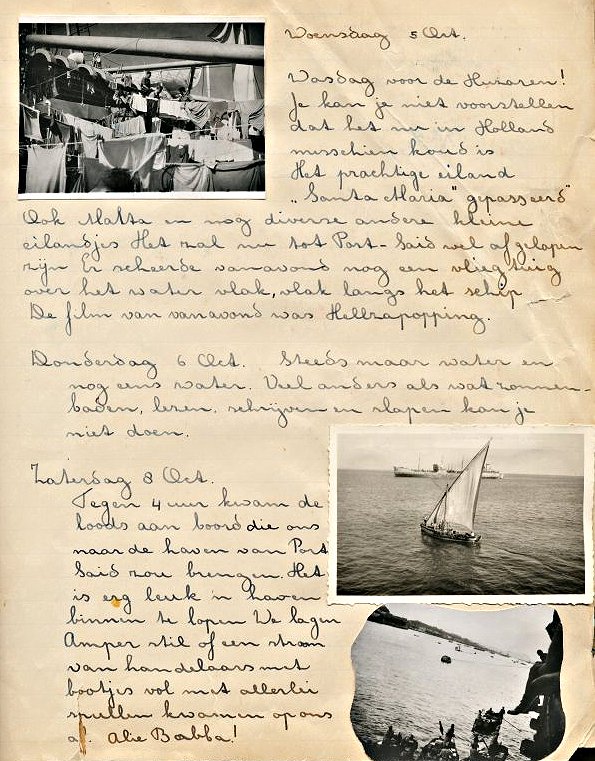 Woensdag 5 Oct.
Wasdag voor de Huzaren!
Je kan je niet voorstellen
dat het nu in Holland
misschien koud is
Het prachtige eiland
„Santa Maria" gepasseerd"
Ook Malta en nog diverse andere kleine
eilandjes Het zal nu tot Port-Said wel afgelopen
zijn Er scheerde vanavond nog een vliegtuig
over het water vlak, vlak langs het schip
De film van vanavond was Hellzapopping.
Donderdag 6 Oct. Steeds maar water en
nog eens water. Veel anders als wat zonnen-
baden, lezen, schrijven en slapen kan je
niet doen.
Zaterdag 8 Oct.
Tegen 4 uur kwam de
loods aan boord die ons
naar de haven van Port
Said zou brengen. Het
is erg leuk 'n haven
binnen te lopen We lagen
Amper stil of een stroom
van handelaars met
bootjes vol met allerlei
spullen kwamen op ons
af. Alie Babba!